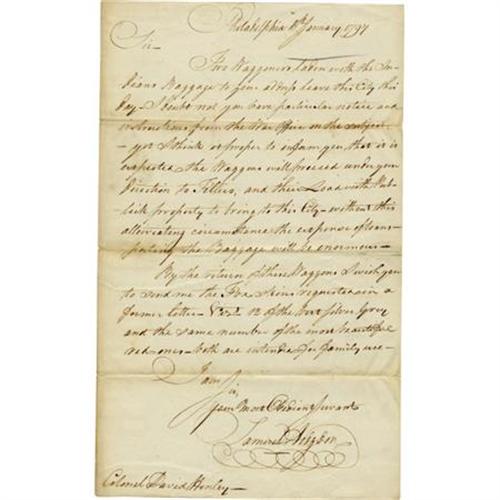 Philadelphia January 1797
Sir
Two Waggoners laden with the In-
dians Baggage to your address leave this City this
day - I doubt not you have particular notice and
instructions from the War Office on the subject -
yet I think it proper to inform you, that it is
expected the Waggons will proceed under your
Direction to Tellico, and there Load with Pub-
lick property to bring to this City - without this
alleviating circumstance the expense of trans-
porting the Baggage will be enormous -
By the return of these Waggons I wish you
to send me the Fox Skins requested in a
former letter - 12 of the best Silver Grey
and the same number of the most beautiful
red ones - both are intended for family use -
I am
Sir,
your Most Obedient Servant
Samuel Hodgdon
Colonel David Henley -